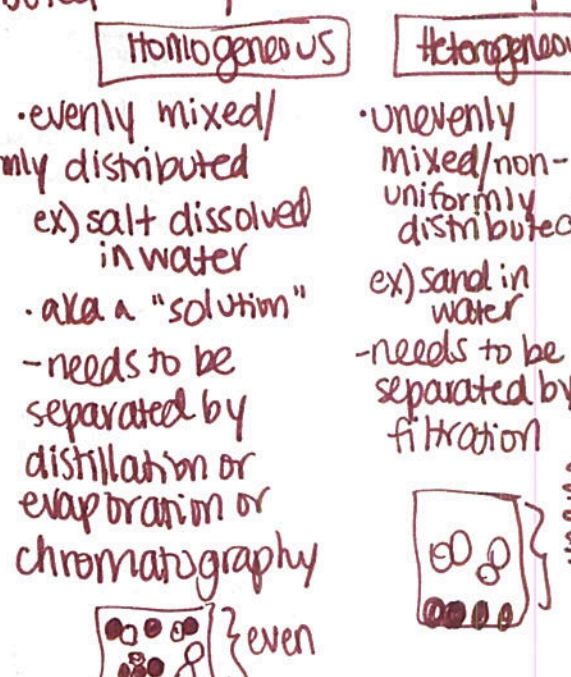 Homogeneous
·evenly mixed/
mly distributed
ex) salt dissolved
in water
·aka a "solution"
-needs to be
separated by
distillation or
evaporation or
chromatography
even
Heterogeneou
·unevenly
mixed/non-
uniformly
distributed
ex) sand in
water
-needs to be
separated by
filtration